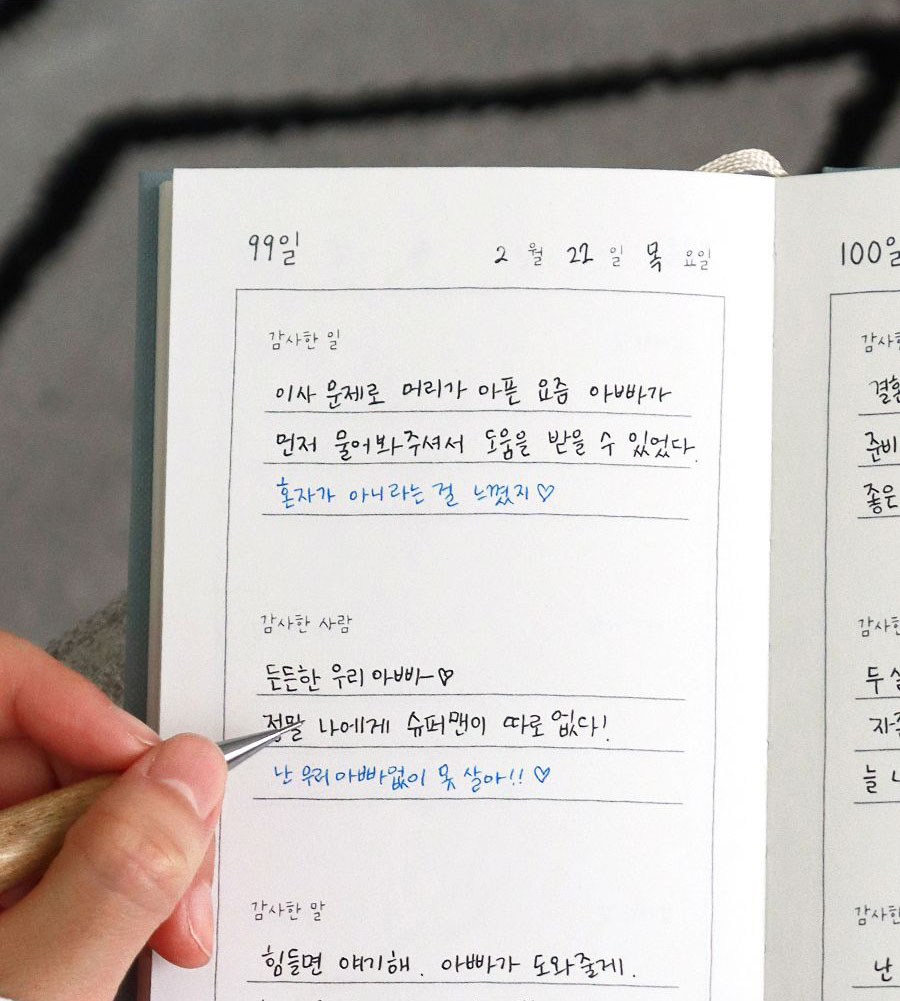 99일
2 월 22 일 목 요일
감사한 일
이사 문제로 머리가 아픈 요즘 아빠가
먼저 물어봐주셔서 도움을 받을 수 있었다.
혼자가 아니라는 걸 느꼈지♡
감사한 사람
든든한 우리 아빠~♡
정말 나에게 슈퍼맨이 따로 없다!
난 우리 아빠없이 못 살아!! ♡
감사한 말
힘들면 얘기해. 아빠가 도와줄게.
100일
감사한
결혼
준비
좋은
감사한
두
늘
감사한
난